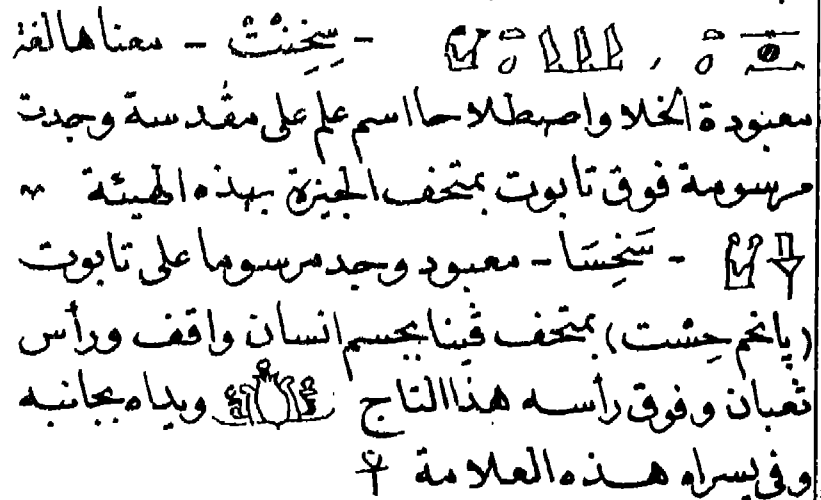 - سِخِنِتْ - معناها لغة
معبودة الخلا واصطلاحا اسم علم على مقدسة وجدت
مرسومة فوق تابوت بمتحف الجيزة بهذه الهيئة
- سَنحِسَا - معبود وجد مرسوما على تابوت
(پانحم حِسْت) بمتحف ڤينا بجسم انسان واقف ورأس
ثعبان وفوق رأسه هذا التاج ويداه بجانبه
وفي يسراه هذه العلامة